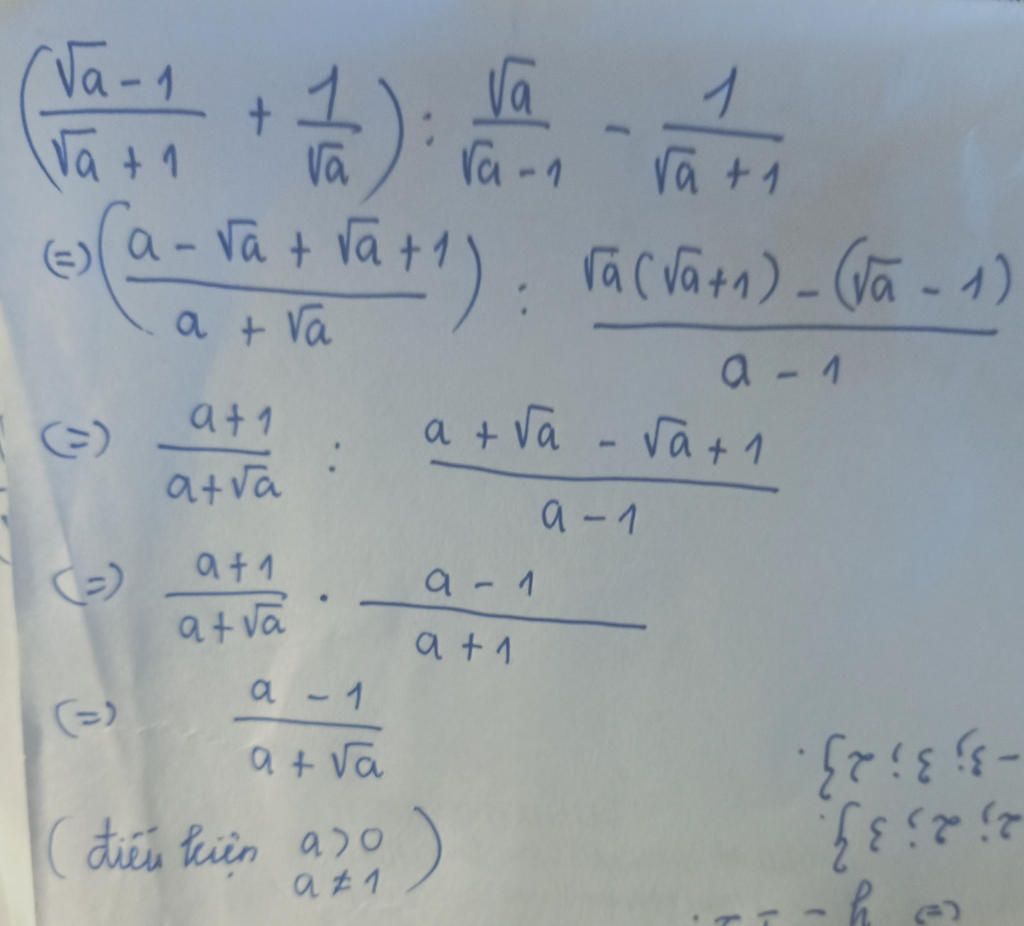 (√a - 1 / √a + 1 + 1 / √a) : √a / √a - 1 - 1 / √a + 1
(=) (a - √a + √a + 1 / a + √a) : √a(√a+1) - (√a - 1) / a - 1
(=) a+1 / a+√a : a + √a - √a + 1 / a - 1
(=) a+1 / a+√a . a - 1 / a + 1
(=) a - 1 / a + √a
(điều kiện a>0
a ≠ 1)
-3; 3; 2}.
2; 2; 3}.